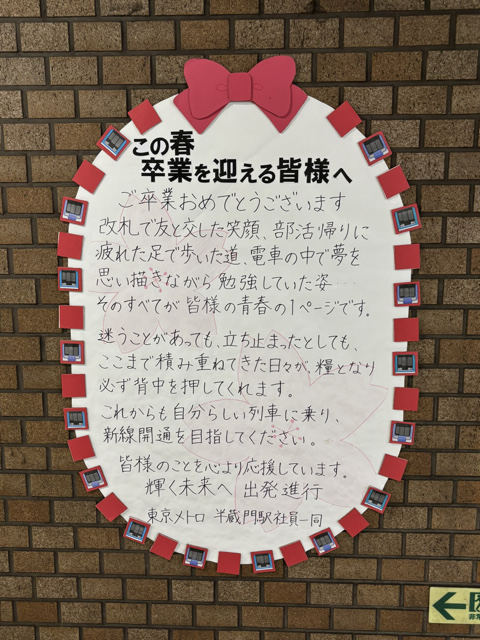 この春
卒業を迎える皆様へ
ご卒業おめでとうございます
改札で友と交した笑顔、部活帰りに
疲れた足で歩いた道、電車の中で夢を
思い描きながら勉強していた姿……
そのすべてが皆様の青春の1ページです。
迷うことがあっても、立ち止まったとしても、
ここまで積み重ねてきた日々が、糧となり
必ず背中を押してくれます。
これからも自分らしい列車に乗り、
新線開通を目指してください。
皆様のことを心より応援しています。
輝く未来へ 出発進行
東京メトロ 半蔵門駅社員一同